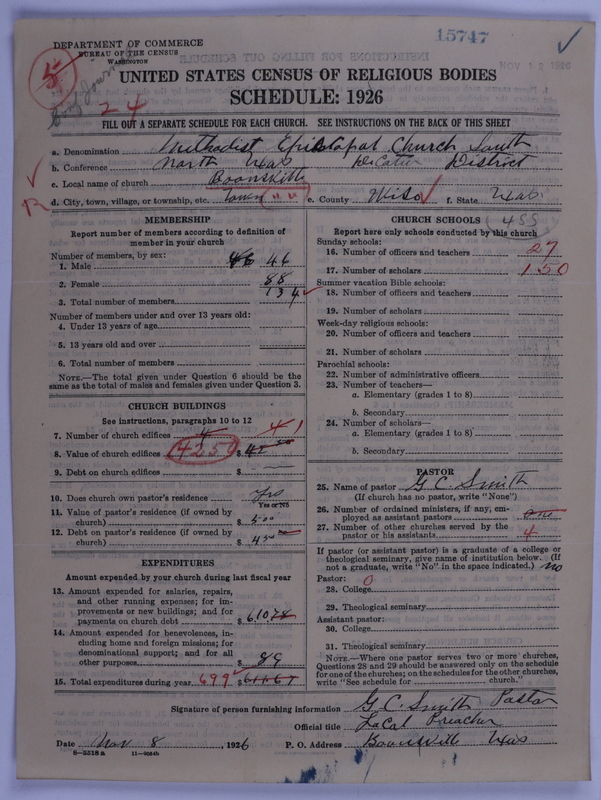 15747
NOV 12 1926
DEPARTMENT OF COMMERCE
BUREAU OF THE CENSUS
WASHINGTON
5
UNITED STATES CENSUS OF RELIGIOUS BODIES
SCHEDULE: 1926
24
FILL OUT A SEPARATE SCHEDULE FOR EACH CHURCH. SEE INSTRUCTIONS ON THE BACK OF THIS SHEET
a. Denomination Methodist Episcopal Church South
b. Conference North Texas Decatur District
c. Local name of church Boonsville
d. City, town, village, or township, etc. Town (" ") e. County Wise f. State Texas
MEMBERSHIP
Report number of members according to definition of
member in your church
Number of members, by sex:
1. Male 46 46
2. Female 88
3. Total number of members 134
Number of members under and over 13 years old:
4. Under 13 years of age
5. 13 years old and over
6. Total number of members
NOTE.—The total given under Question 6 should be the
same as the total of males and females given under Question 3.
CHURCH BUILDINGS
See instructions, paragraphs 10 to 12
7. Number of church edifices 4 1
8. Value of church edifices 4250 $
9. Debt on church edifices $
10. Does church own pastor's residence Yes
Yes or No
11. Value of pastor's residence (if owned by
church) $ 500
12. Debt on pastor's residence (if owned by
church) $ 450
EXPENDITURES
Amount expended by your church during last fiscal year
13. Amount expended for salaries, repairs,
and other running expenses; for im-
provements or new buildings; and for
payments on church debt $ 610
14. Amount expended for benevolences, in-
cluding home and foreign missions; for
denominational support; and for all
other purposes $ 89
15. Total expenditures during year 699 $
CHURCH SCHOOLS 455
Report here only schools conducted by this church
Sunday schools:
16. Number of officers and teachers 27
17. Number of scholars 150
Summer vacation Bible schools:
18. Number of officers and teachers
19. Number of scholars
Week-day religious schools:
20. Number of officers and teachers
21. Number of scholars
Parochial schools:
22. Number of administrative officers
23. Number of teachers—
a. Elementary (grades 1 to 8)
b. Secondary
24. Number of scholars—
a. Elementary (grades 1 to 8)
b. Secondary
PASTOR
25. Name of pastor G C. Smith
(If church has no pastor, write "None")
26. Number of ordained ministers, if any, em-
ployed as assistant pastors one
27. Number of other churches served by the
pastor or his assistants 4
If pastor (or assistant pastor) is a graduate of a college or
theological seminary, give name of institution below. (If
not a graduate, write "No" in the space indicated.) no
Pastor: 0
28. College
29. Theological seminary
Assistant pastor:
30. College
31. Theological seminary
NOTE.—Where one pastor serves two or more churches,
Questions 28 and 29 should be answered only on the schedule
for one of the churches; on the schedules for the other churches,
write "See schedule for church."
Signature of person furnishing information G. C. Smith Pastor
Official title Local Preacher
Date Nov 8, 1926 P. O. Address Boonsville Texas
8-5318a 11-9064b